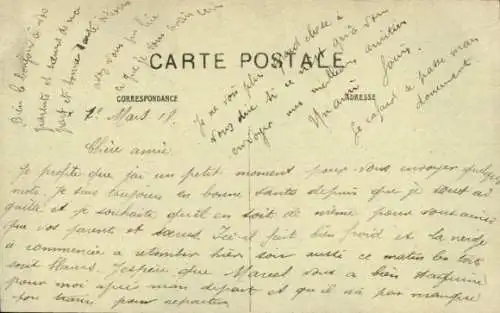 CARTE POSTALE
CORRESPONDANCE
ADRESSE
1er Mars 18.
Chère amie
Je profite que j'ai un petit moment pour vous envoyer quelques
mots. Je suis toujours en bonne santé depuis que je vous ai
quitté et je souhaite qu'il en soit de même pour vous ainsi
que vos parents et sœurs. Ici il fait bien froid et la neige
a commencée a retomber hier soir aussi ce matin les toits
sont blancs. J'espère que Marcel vous a bien
pour moi après mon départ et qu'il n'a pas manqué
son train pour repartir
Je ne vois plus grand chose à
vous dire si ce n'est qu'à vous
envoyer mes meilleures amitiés
Un ami
Louis.
Le cafard a passé mais
doucement
Bien le bonjour à vos
parents et sœurs de ma
part et bonne santé
avez vous pu lire